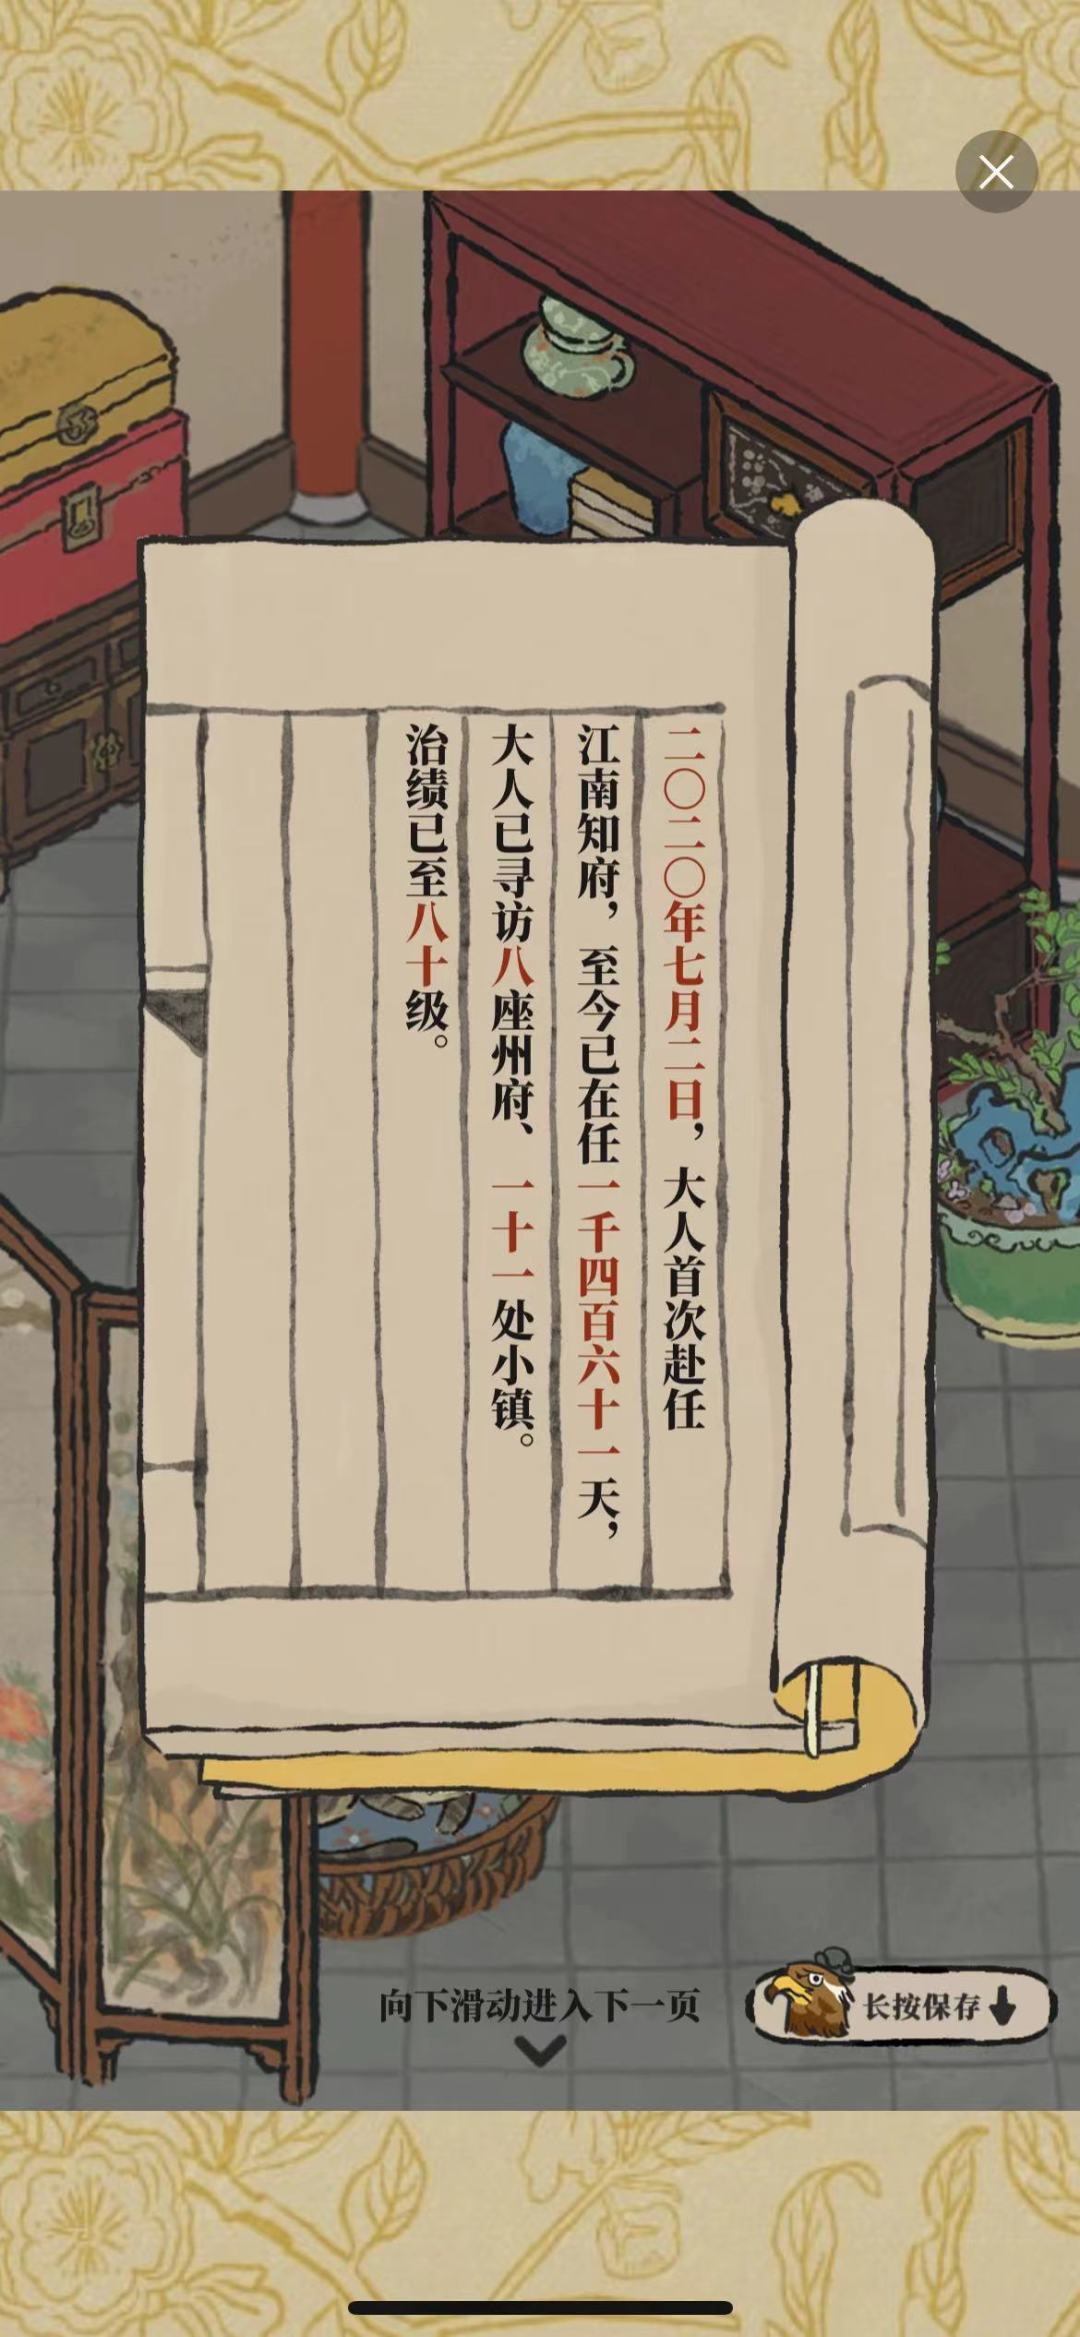 二〇二〇年七月二日，大人首次赴任
江南知府，至今已在任一千四百六十一天，
大人已寻访八座州府、一十一处小镇。
治绩已至八十级。
向下滑动进入下一页
长按保存